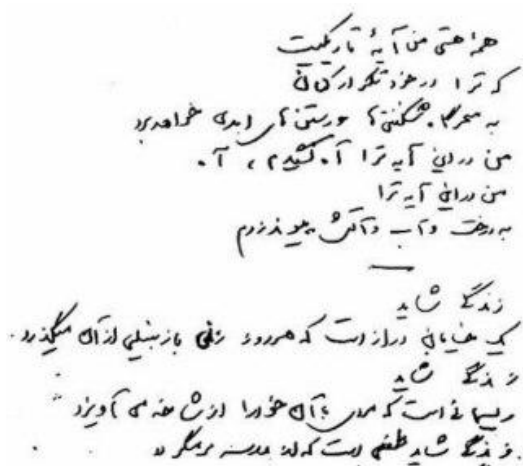 همهٔ هستی من آیهٔ تاریکیست
که ترا در خود تکرار کنان
به سحرگاه شکفتن ها و رستن های ابدی خواهد برد
من در این آیه ترا آه کشیدم ، آه
من در این آیه ترا
به درخت و آب و آتش پیوند زدم
زندگی شاید
یک خیابان درازست که هر روز زنی با زنبیلی از آن میگذرد
زندگی شاید
ریسمانیست که مردی با آن خود را از شاخه می آویزد
و زندگی شاید طفلی است که از مدرسه برمیگردد